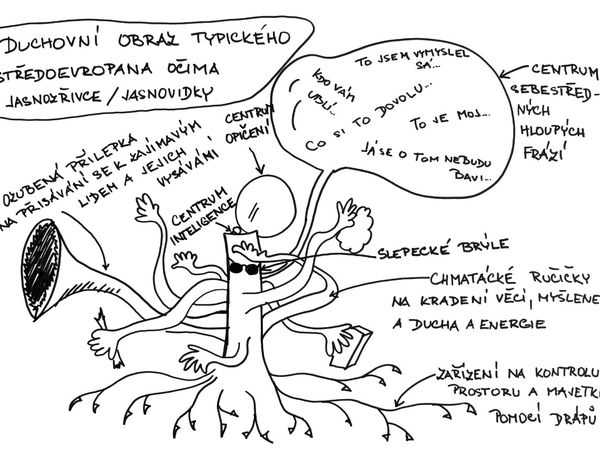 DUCHOVNÍ OBRAZ TYPICKÉHO
STŘEDOEVROPANA OČIMA
JASNOZŘIVCE / JASNOVIDKY
TO JSEM VYMYSLEL
SÁ...
KDO VÁM
UBLÍ...
CO SI TO DOVOLU...
TO JE MOJ...
JÁ SE O TOM NEBUDU
BAVI...
CENTRUM
SEBESTŘED-
NÝCH
HLOUPÝCH
FRÁZÍ
OZUBENÁ PŘILEPKA
NA PŘISÁVÁNÍ SE K ZAJÍMAVÝM
LIDEM A JEJICH
VYSÁVÁNÍ
CENTRUM
OPIČENÍ
CENTRUM
INTELIGENCE
SLEPECKÉ BRÝLE
CHMATÁCKÉ RUČIČKY
NA KRADENÍ VĚCÍ, MYŠLENE
A DUCHA A ENERGIE
ZAŘÍZENÍ NA KONTROLU
PROSTORU A MAJETKU
POMOCÍ DRÁPŮ